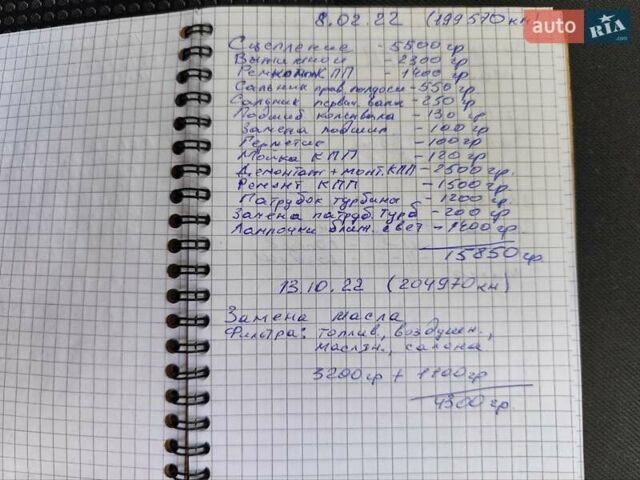 8.02.22 (199570 км)
auto RIA .com
Сцепление - 5500 гр
Выжимной - 2300 гр
Ремкомп КПП - 1400 гр
Сальник прав. полуоси - 550 гр.
Сальник первич. вала - 250 гр
Подшип коленвала - 130 гр
Замена подшип - 100 гр
Герметик - 100 гр
Мойка КПП - 120 гр
Демонтаж + монт. КПП - 2500 гр.
Ремонт КПП - 1500 гр.
Патрубок турбины - 1200 гр.
Замена патруб. турб - 200 гр
Лампочки ближ. свет - гр.
15850 гр.
13.10.22 (204970 км)
Замена масла
Фильтра: топлив, воздушн.,
маслян., салона
3200 гр + 1100 гр
4300 гр.